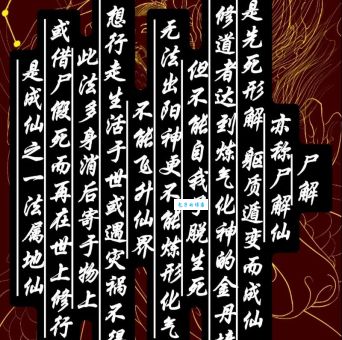 尸解
亦称尸解仙
是先死形解 躯质遁变而成仙
修道者达到炼气化神的金丹境
但不能自我脱生死
无法出阳神更不能炼形化气
不能飞升仙界
想行走生活于世或遇灾祸不得
此法多身消后寄于物上
或借尸假死而再在世上修行
是成仙之一法属地仙